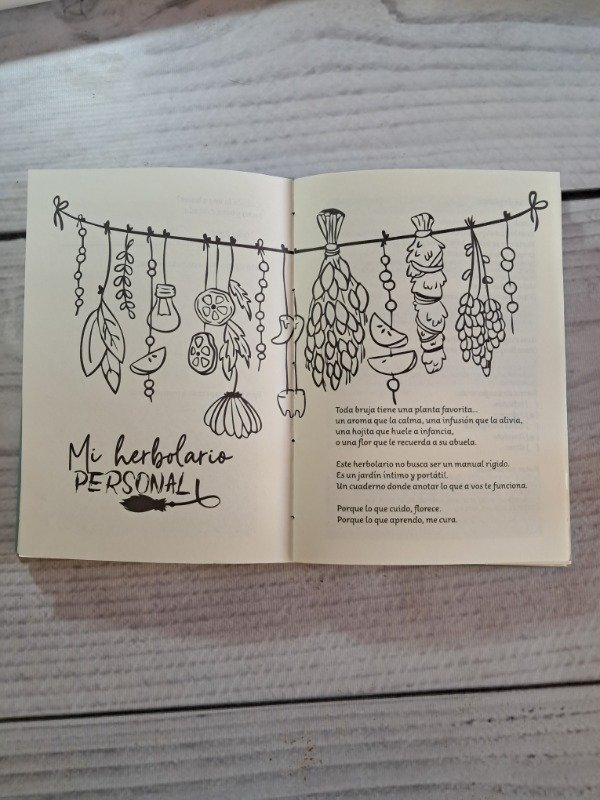 Mi herbolario
PERSONAL
Toda bruja tiene una planta favorita...
un aroma que la calma, una infusión que la alivia,
una hojita que huele a infancia,
o una flor que le recuerda a su abuela.
Este herbolario no busca ser un manual rígido.
Es un jardín íntimo y portátil.
Un cuaderno donde anotar lo que a vos te funciona.
Porque lo que cuido, florece.
Porque lo que aprendo, me cura.